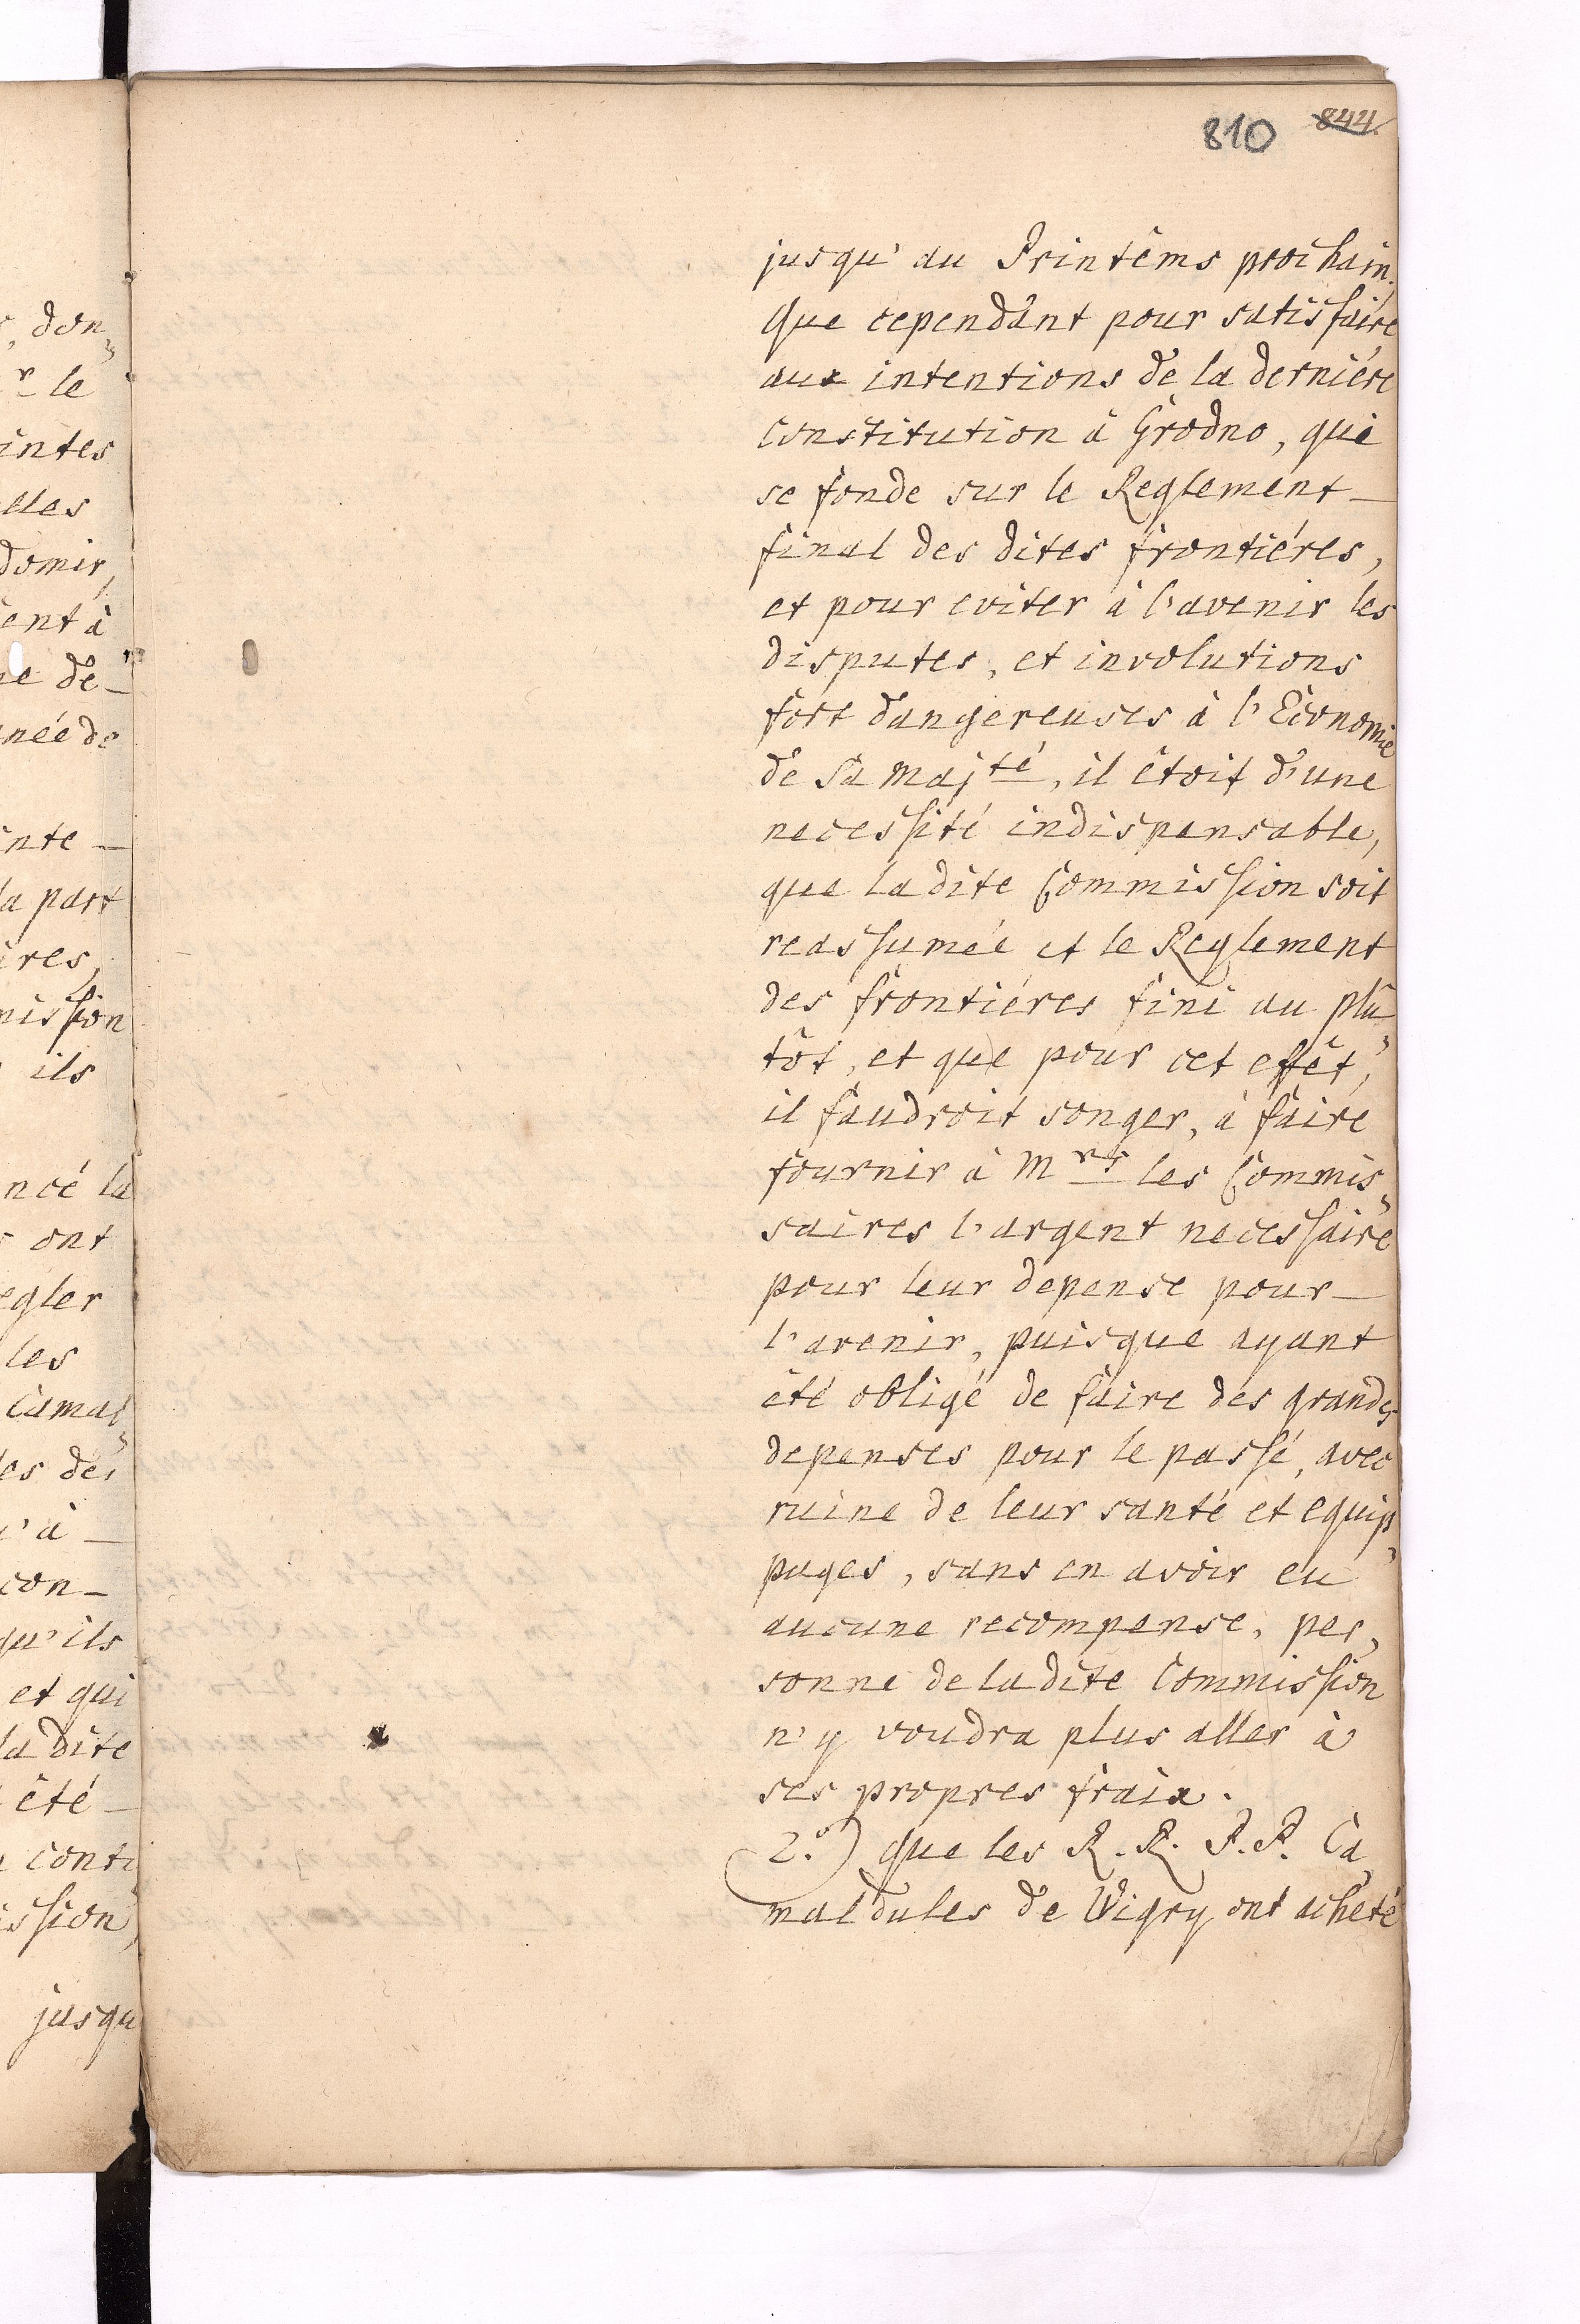 810 844.
jusqu' au Printêms prochain.
Que cependant pour satisfaire
aux intentions de la derniére
Constitution à Grodno, qui
se fonde sur le Reglement
final des dites frontiéres,
et pour eviter à l'avenir les
disputes, et involutions
fort dangereuses à l'Economie
de Sa Majté, il êtoit d'une
necessité indispensable,
que la dite Commission soit
reassumée et le Reglement
des frontiéres fini au plû„
tôt, et que pour cet effêt,
il faudroit songer, à faire
fournir à Mrs les Commis„
saires l'argent necessaire
pour leur depense pour
l'avenir, puisque ayant
êté obligé de faire des grandes
depenses pour le passé, avec
ruine de leur santé et equip„
pages, sans en avoir eu
aucune recompense, per„
sonne de la dite Commission
n'y voudra plus aller à
ses propres fraix.
2.°) que les R. R. P. P. Ca„
maldules de Wigry ont acheté
, don„
r le
intes
elles
domir,
ent à
ne de-
née de
inte
la part
ires,
mission
ils
ncé la
ont
egler
les
Camal„
les des
'à
con-
qu'ils
et qui
la dite
été
conti
ission,
jusqu